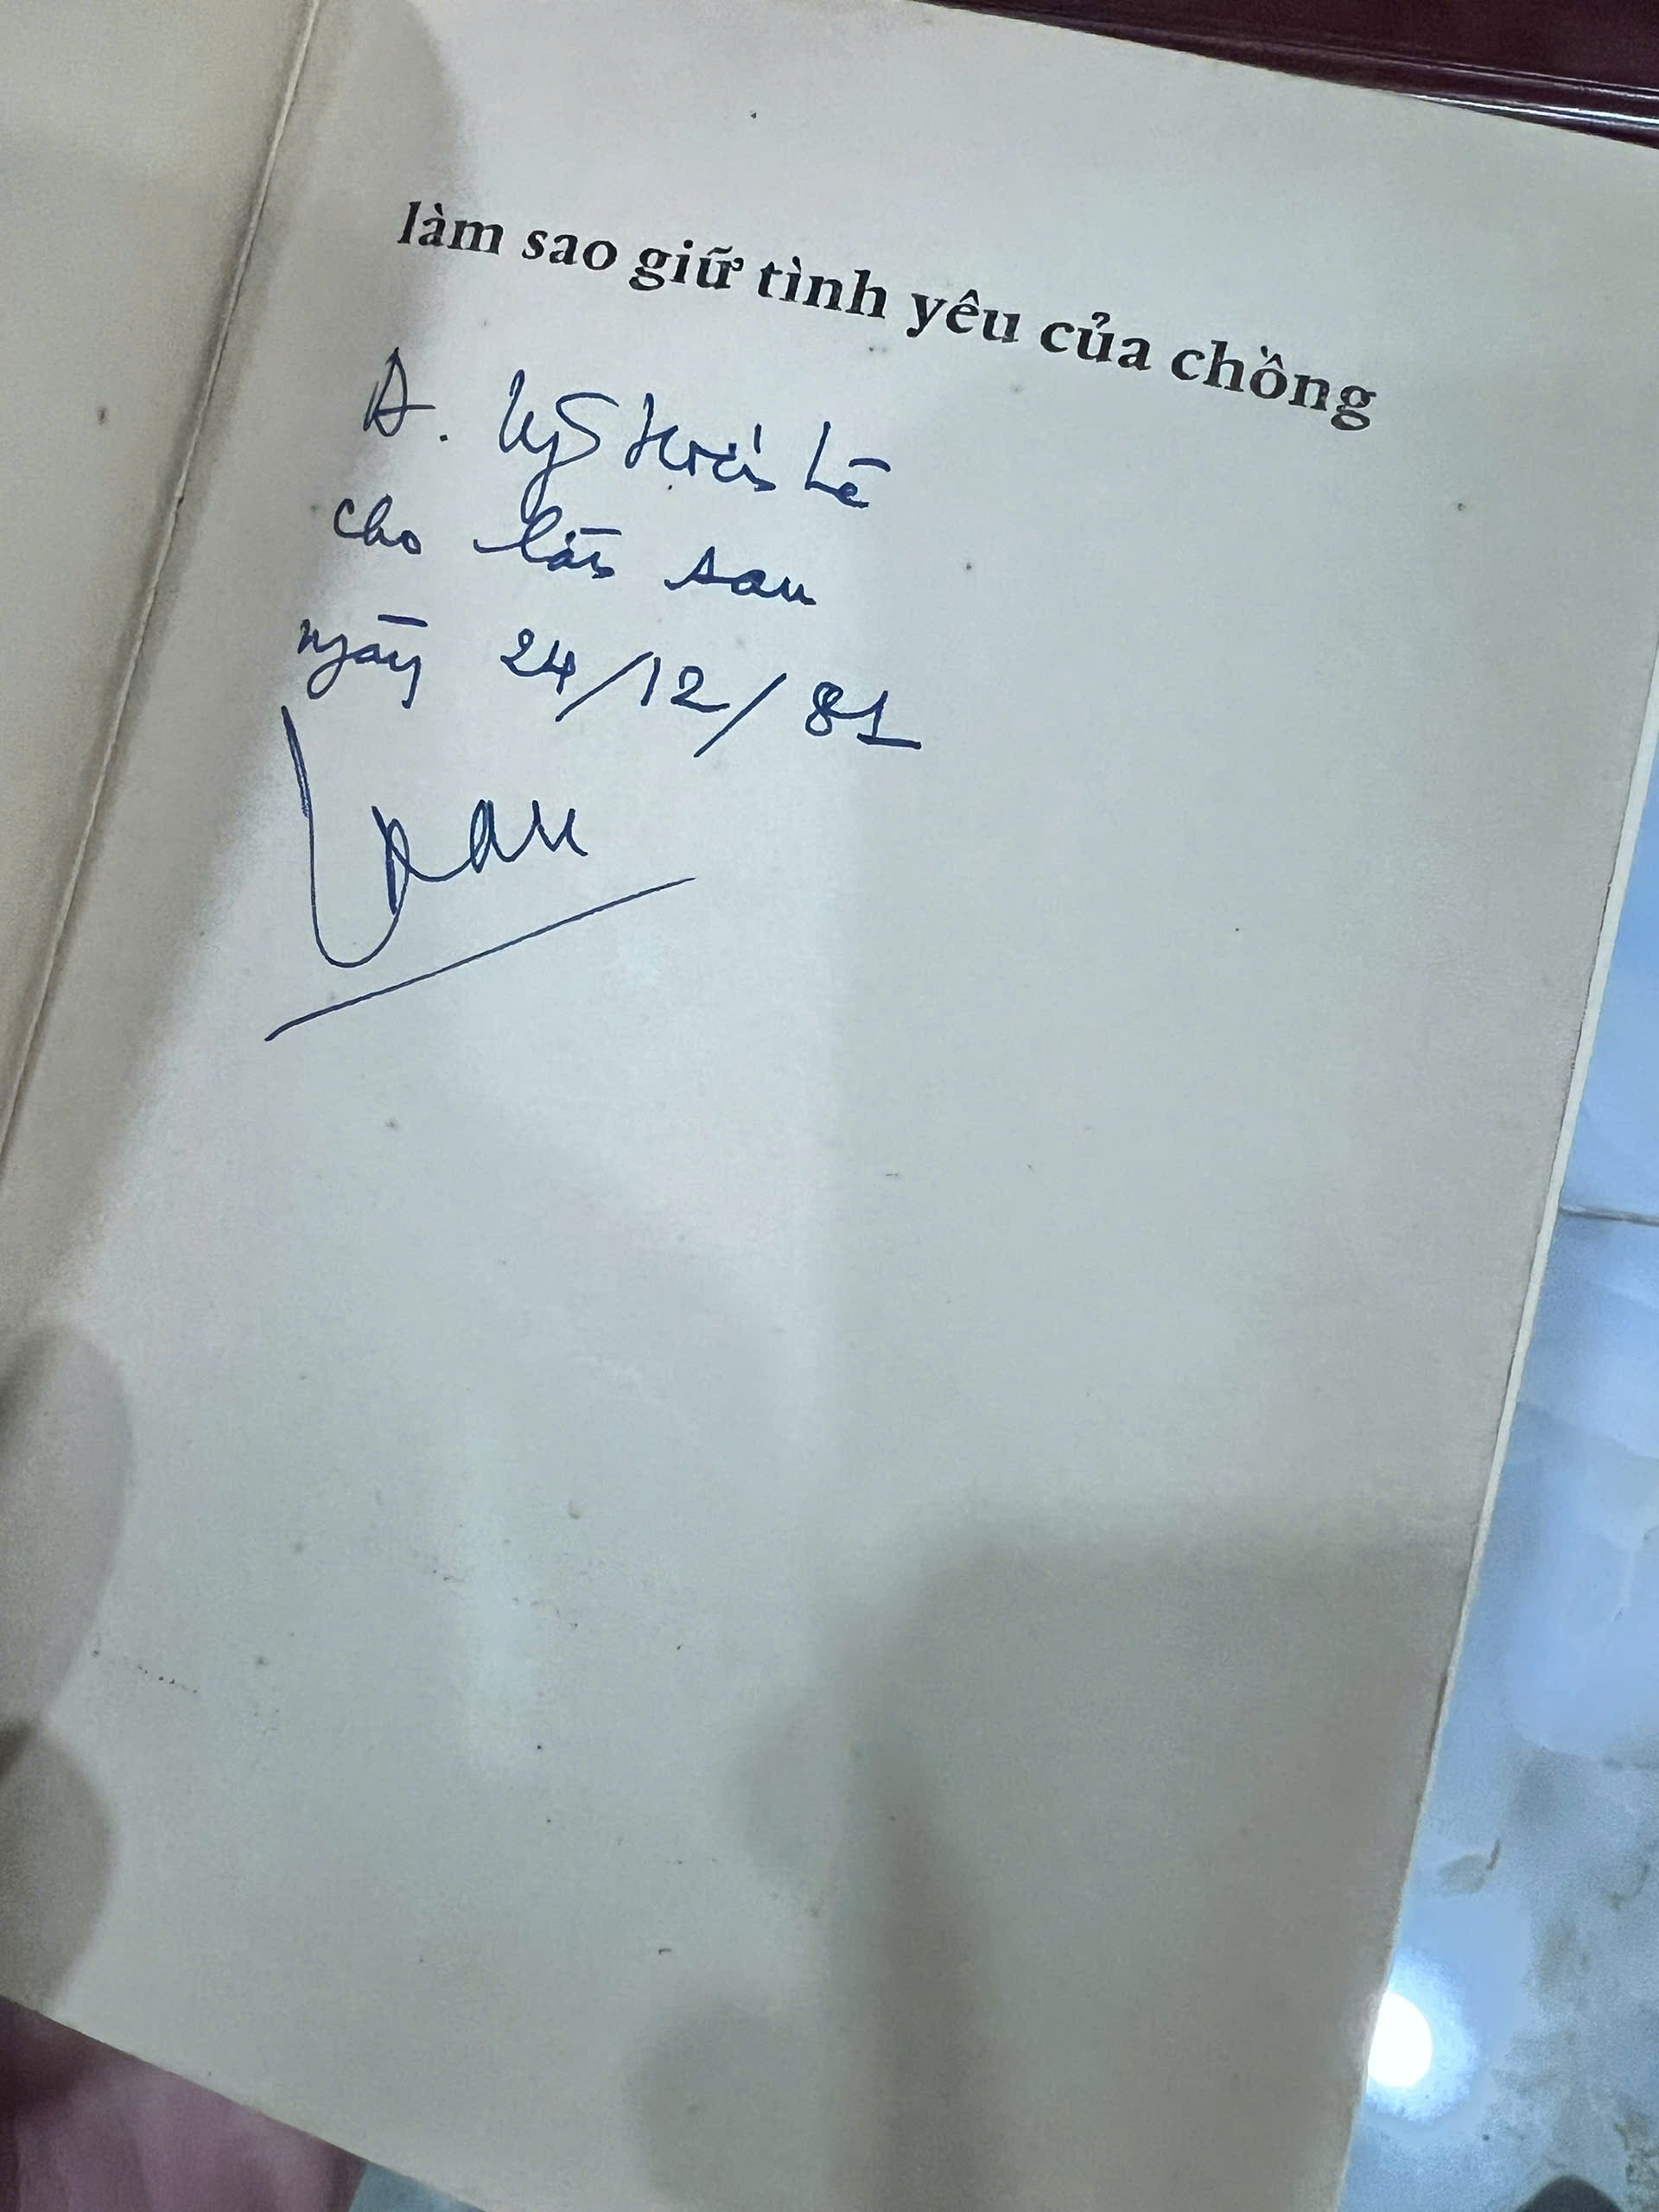 làm sao giữ tình yêu của chồng
A.
cho lần sau
ngày 24/12/81
Loan